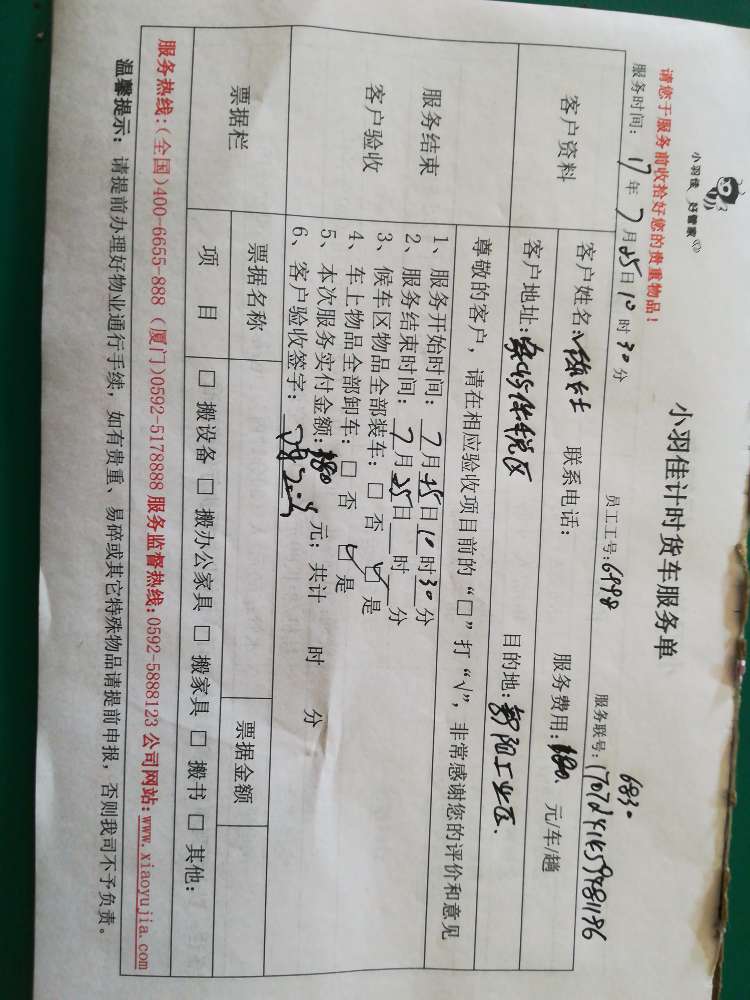 小羽佳 好管家
小羽佳计时货车服务单
请您于服务前收拾好您的贵重物品！
服务时间：17年7月25日10时30分 员工工号：6498 服务联号：
6830
客户资料
客户姓名： 女士 联系电话： 服务费用：180 元/车/趟
客户地址： 保税区 目的地： 阳工业区.
服务结束
客户验收
尊敬的客户，请在相应验收项目前的“□”打“√”，非常感谢您的评价和意见
1、服务开始时间：7月25日10时30分
2、服务结束时间：7月25日 时 分
3、候车区物品全部装车：□ 否 ☑ 是
4、车上物品全部卸车：□ 否 ☑ 是
5、本次服务实付金额：180 元；共计 时 分
6、客户验收签字：
票据栏
票据名称 票据金额
项 目 □ 搬设备 □ 搬办公家具 □ 搬家具 □ 搬书 □ 其他：
服务热线：(全国)400-6655-888 (厦门)0592-5178888 服务监督热线：0592-5888123 公司网站：www.xiaoyujia.com
温馨提示：请提前办理好物业通行手续，如有贵重、易碎或其它特殊物品请提前申报，否则我司不予负责。